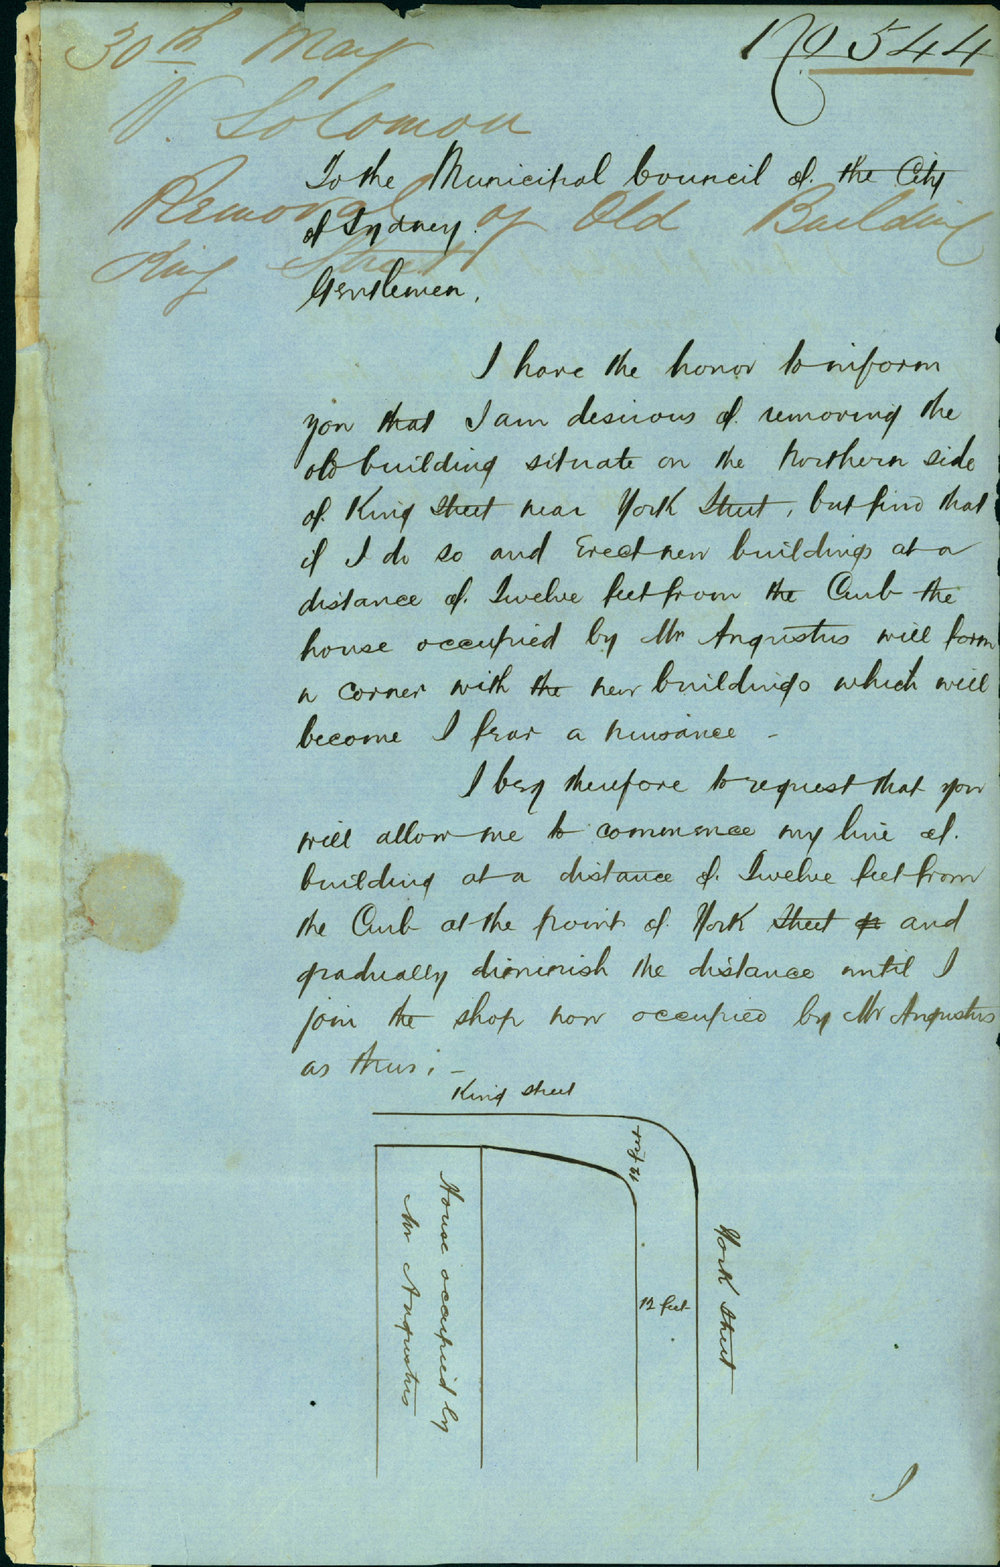 30th May
No 544
V. Solomon
Removal of Old Building
King Street
To the Municipal Council of the City
of Sydney.
Gentlemen,
I have the honor to inform
you that I am desirous of removing the
old building situate on the Northern side
of King Street near York Street, but find that
if I do so and Erect new buildings at a
distance of Twelve feet from the Curb the
house occupied by Mr Angustus will form
a corner with the new buildings which will
become I fear a nuisance -
I beg therefore to request that you
will allow me to commence my line of
building at a distance of Twelve feet from
the Curb at the point of York Street and
gradually diminish the distance until I
join the shop now occupied by Mr Angustus
as thus: -
King Street
12 feet
York Street
12 feet
House occupied by
Mr Angustus
I